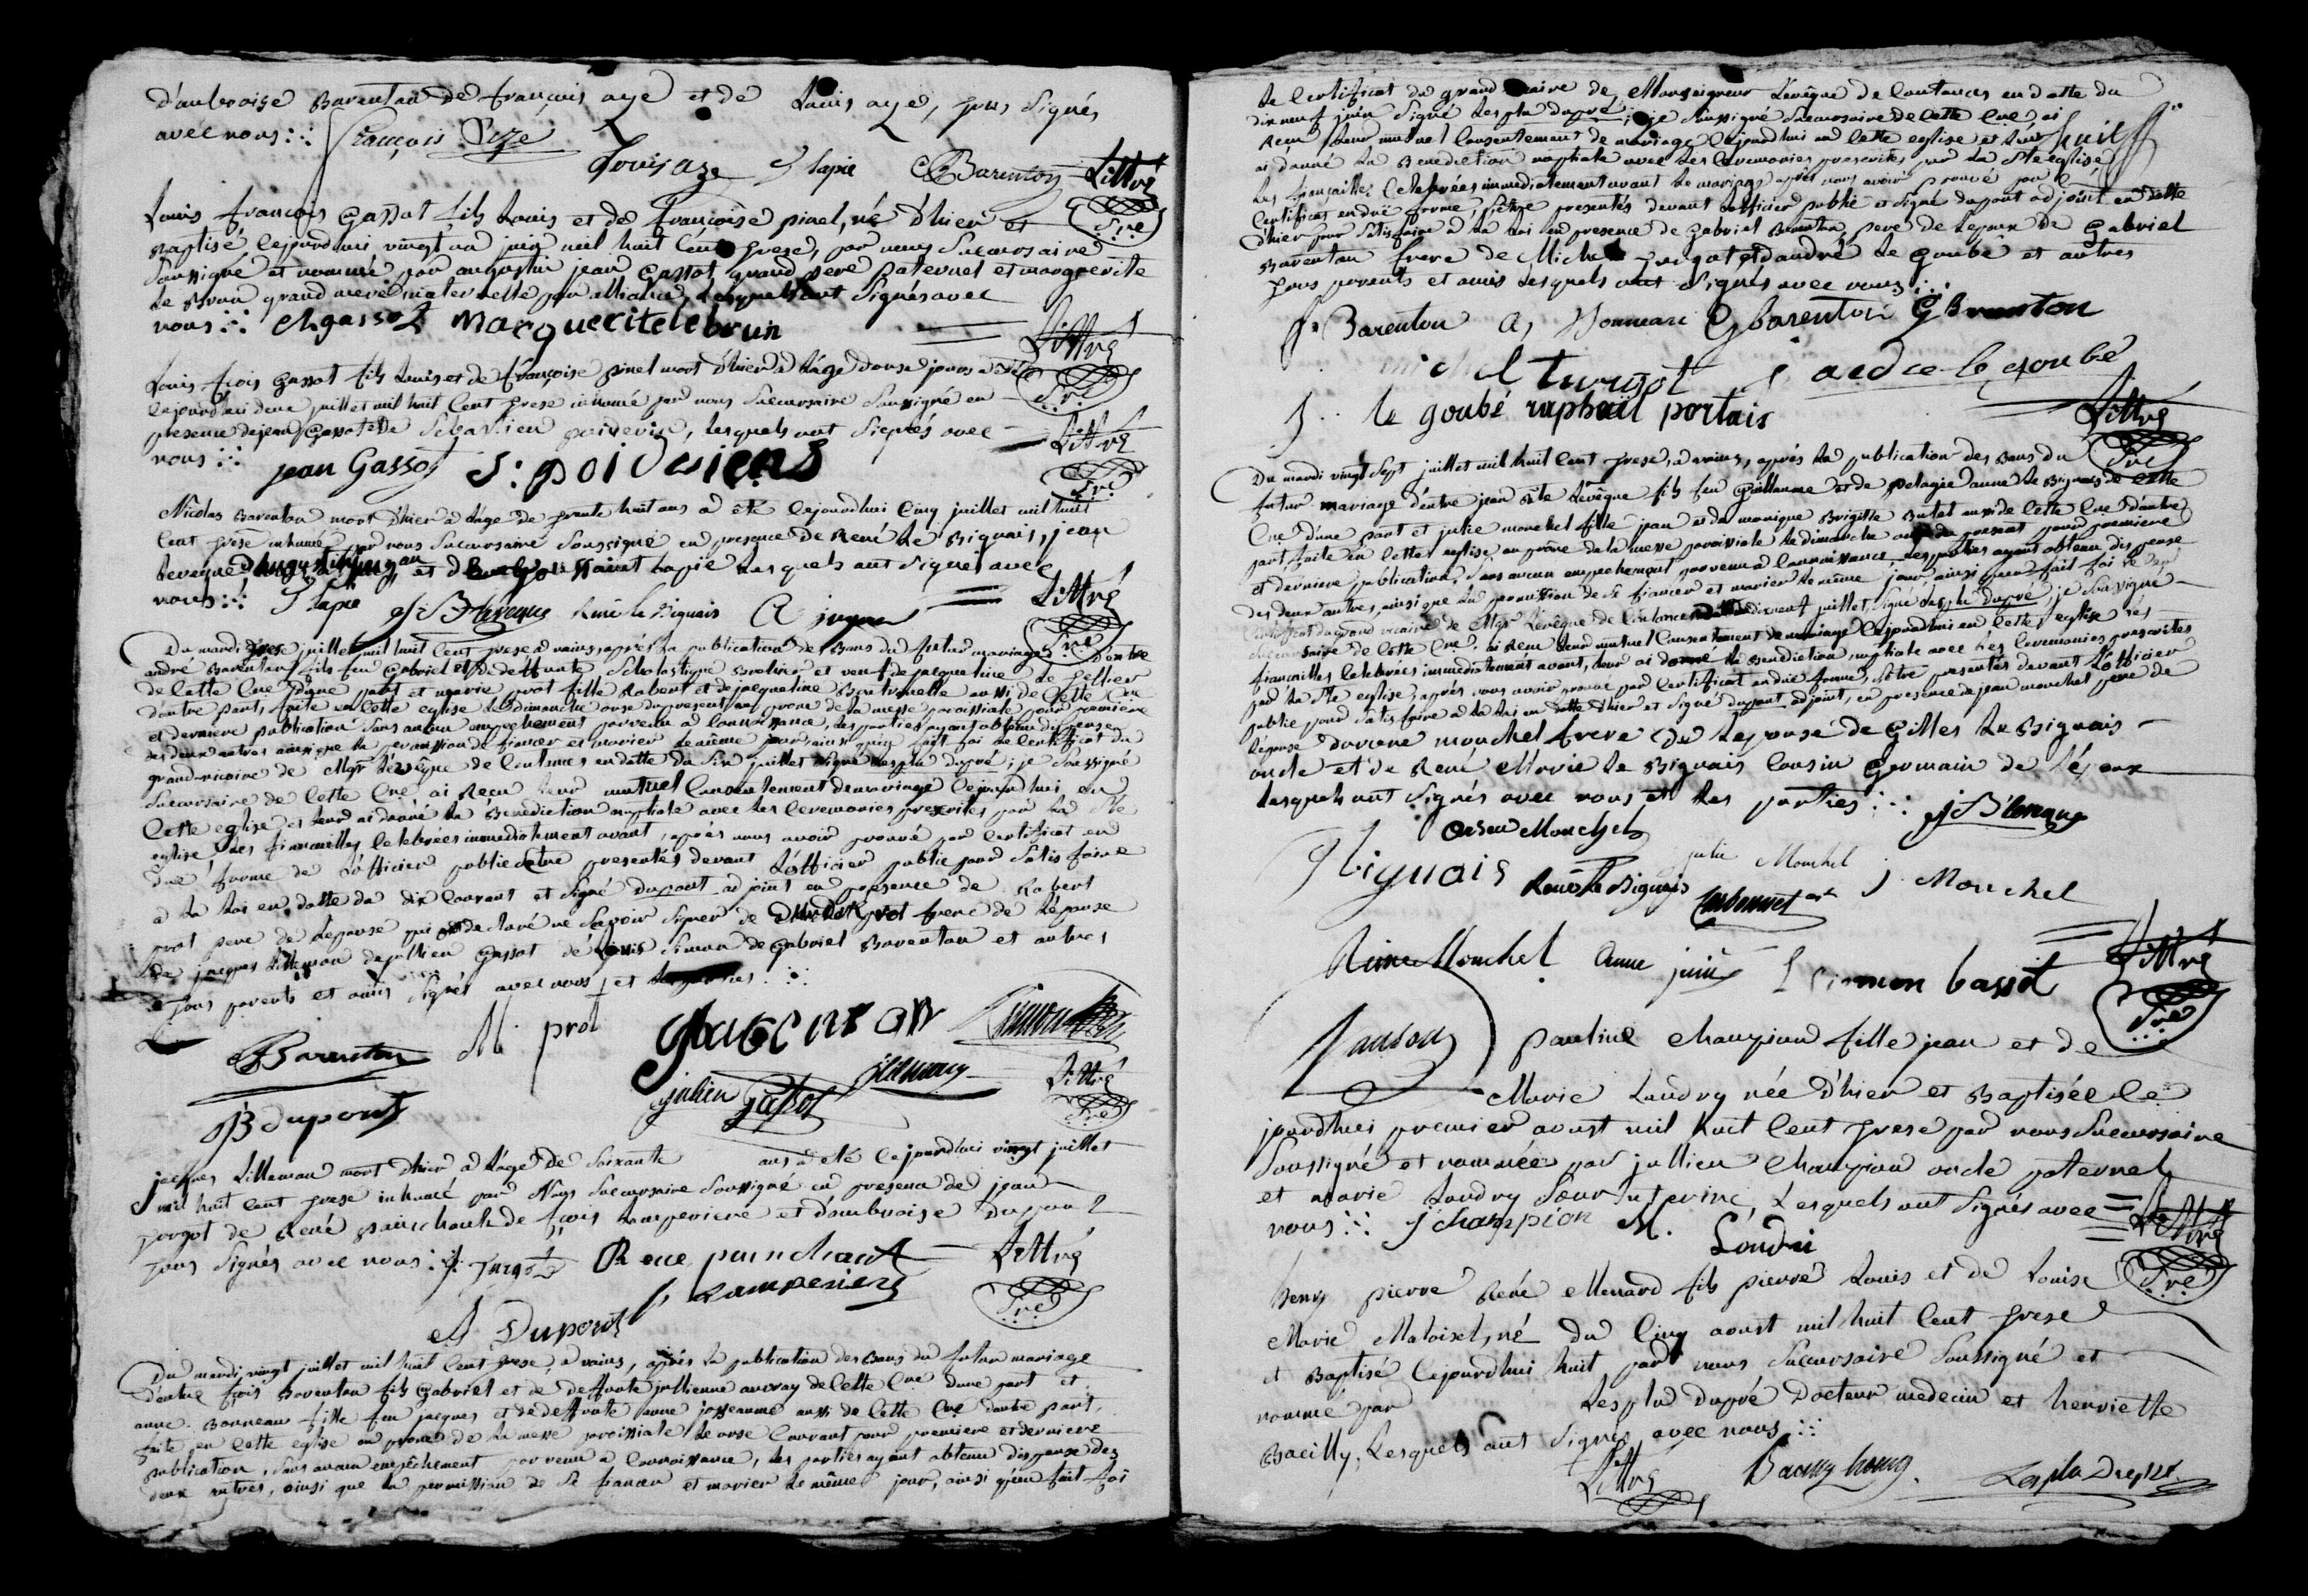 d'ambroise Barenton de françois azé et de Louis azé, tous signés
avec nous :·: François Aze
Louis aze J lapie A Barenton Littré
Ptre
Louis françois Gassot fils Louis et de françoise pinel, né d'hier et
Baptisé cejourdhui vingt un juin mil huit cent treze, par nous succursaire
soussigné et nommé par augustin jean Gassot grand pere paternel et marguerite
le Brun grand mere maternelle par alliance, lesquels ont signés avec
nous :·: Gassot marguerite lebrun Littré
Ptre
Louis fçois Gassot fils Louis et de françoise pinel mort d'hier à l'âge douse jours a été
cejourdhui deux juillet mil huit cent treze inhumé par nous succursaire soussigné en
presence de jean Gassot et de Sebastien poidevin, lesquels ont signés avec
nous :·: jean Gassot S: poidevin Littré
Ptre
Nicolas Barenton mort d'hier à l'âge de trente huit ans a été cejourdhui cinq juillet mil huit
cent treze inhumé par nous succursaire soussigné en presence de René le Biguais, jean
leveque et lapie lesquels ont signés avec
nous :·: J lapie J B leveque René le Biguais A Littré
Ptre
Du mardi treze juillet mil huit cent treze à vains, après la publication des Bans du futur mariage d'entre
andré Barenton fils feu Gabriel et de deffunte Scholastique et veuf de jacqueline le Pellier
de cette Cne d'une part et marie prot fille Robert et de jacqueline aussi de cette Cne
d'autre part, faite en cette eglise le dimanche onse du present au prone de la messe paroissiale pour premiere
et derniere publication sans aucun empechement parvenu a connoissance, les parties ayant obtenu dispense
des deux autres ainsi que la permission de fiancer et marier le même jour, ainsi qu'en fait foi le certificat du
grand vicaire de Mgr levêque de Coutances en datte du six juillet signé lesplu dupré; je soussigné
succursaire de cette Cne ai recu leur mutuel consentement de mariage cejourdhui en
cette eglise et leur ai donné la Benediction nuptiale avec les ceremonies prescrites par la ste
eglise, les fiancailles celebrées immediatement avant, après nous avoir prouvé par certificat en
due forme de l'officier public s'être presentés devant l'officier public pour satisfaire
a la loi en datte du dix courant et signé dupont adjoint en presence de Robert
prot pere de l'epouse qui a declaré ne savoir signer de prot frere de l'épouse
de jacques Lilleman de jullien Gassot de Louis Simon de Gabriel Barenton et autres
tous parents et amis signés avec nous et les parties :·:
A Barenton M prot G barenton
JB dupont julien Gassot Littré
Ptre
jacques Lilleman mort d'hier a l'âge de soixante ans a été cejourdhui vingt juillet
mil huit cent treze inhumé par Nous succursaire soussigné en presence de jean
turgot de René painchault de fçois Lamperiere et d'ambroise dupont
tous signés avec nous :·: J Turgot Rene painchaut Littré
f Lamperiere Ptre
A Dupont
Du mardi vingt juillet mil huit cent treze à vains, après la publication des Bans du futur mariage
d'entre fçois Barenton fils Gabriel et de deffunte jullienne auvray de cette Cne d'une part et
anne Bonneau fille feu jacques et de deffunte anne josseaume aussi de cette Cne d'autre part,
faite en cette eglise au prone de la messe paroissiale le onse courrant pour premiere et derniere
publication, sans aucun empêchement parvenu a connoissance, les parties ayant obtenu dispense des
deux autres, ainsi que la permission de se fiancer et marier le même jour, ainsi qu'en fait foi
le certificat du grand vicaire de Monseigneur Levêque de Coutances en datte du
dix neuf juin signé lesplu dupré; je soussigné succursaire de cette Cne ai
recu leur mutuel consentement de mariage cejourdhui en cette eglise et leur
ai donné la Benediction nuptiale avec les ceremonies prescrites par la ste eglise
les fiancailles celebrées immediatement avant le mariage après nous avoir prouvé par
certificat en due forme s'être presentés devant l'officier public et signé dupont adjoint en datte
d'hier pour satisfaire a la loi en presence de Gabriel Barenton pere de lepoux de Gabriel
Barenton frere de Michel turgot et d'andré le Goubé et autres
tous parents et amis lesquels ont signés avec nous :·:
f. Barenton A Bonneau G barenton G Barenton
michel turgot andre le goubé
J. le goubé raphaël portais Littré
Ptre
Du mardi vingt sept juillet mil huit cent treze, à vains, après la publication des Bans du
futur mariage d'entre jean Bte Levêque fils feu Guillaume et de pelagie anne le Biguais de cette
Cne d'une part et julie mouchel fille jean et de monique Brigitte Butel aussi de cette Cne d'autre
part faite en cette eglise au prône de la messe paroissiale le dimanche onse du present pour premiere
et derniere publication, sans aucun empechement parvenu a connoissance, les parties ayant obtenu dispense
des deux autres, ainsi que la permission de se fiancer et marier le même jour, ainsi qu'en fait foi le
certificat du grand vicaire de Mgr Levêque de Coutances dixneuf juillet, signé lesplu dupré, je soussigné
succursaire de cette Cne ai recu leur mutuel consentement de mariage cejourdhui en cette eglise les
fiancailles celebrées immediatement avant, leur ai donné la Benediction nuptiale avec les ceremonies prescrites
par la ste eglise, après nous avoir prouvé par certificat en due forme, s'être presentés devant l'officier
public pour satisfaire a la loi en datte d'hier et signé dupont adjoint, en presence de jean mouchel pere de
l'épouse darsene mouchel frere de lepouse de Gilles le Biguais
oncle et de René Marie le Biguais cousin germain de l'époux
lesquels ont signés avec nous et les parties :·: J B leveque
arsene Mouchel
G biguais René le Biguais julie Mouchel J Mouchel
Aimee Mouchel anne juin L simon bassot Littré
Ptre
Pauline champion fille jean et de
Marie Landry née d'hier et Baptisée ce
jourdhui premier aoust mil huit cent treze par nous succursaire
soussigné et nommée par jullien champion oncle paternel
et marie Landry soeur uterine, lesquels ont signés avec
nous :·: J champion M. Londri Littré
Ptre
henry pierre René Menard fils pierre Louis et de Louise
Marie Maloisel, né du cinq aoust mil huit cent treze
et Baptisé cejourdhui huit par nous succursaire soussigné et
nommé par lesplu dupré docteur medecin et henriette
Bacilly, lesquels ont signés avec nous :·:
Littré Lesplu Dupré